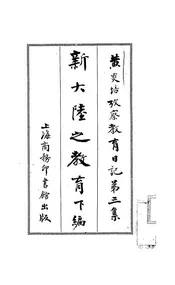 黄炎培攷察教育日記第三集
新大陸之教育下編
上海商務印書館出版